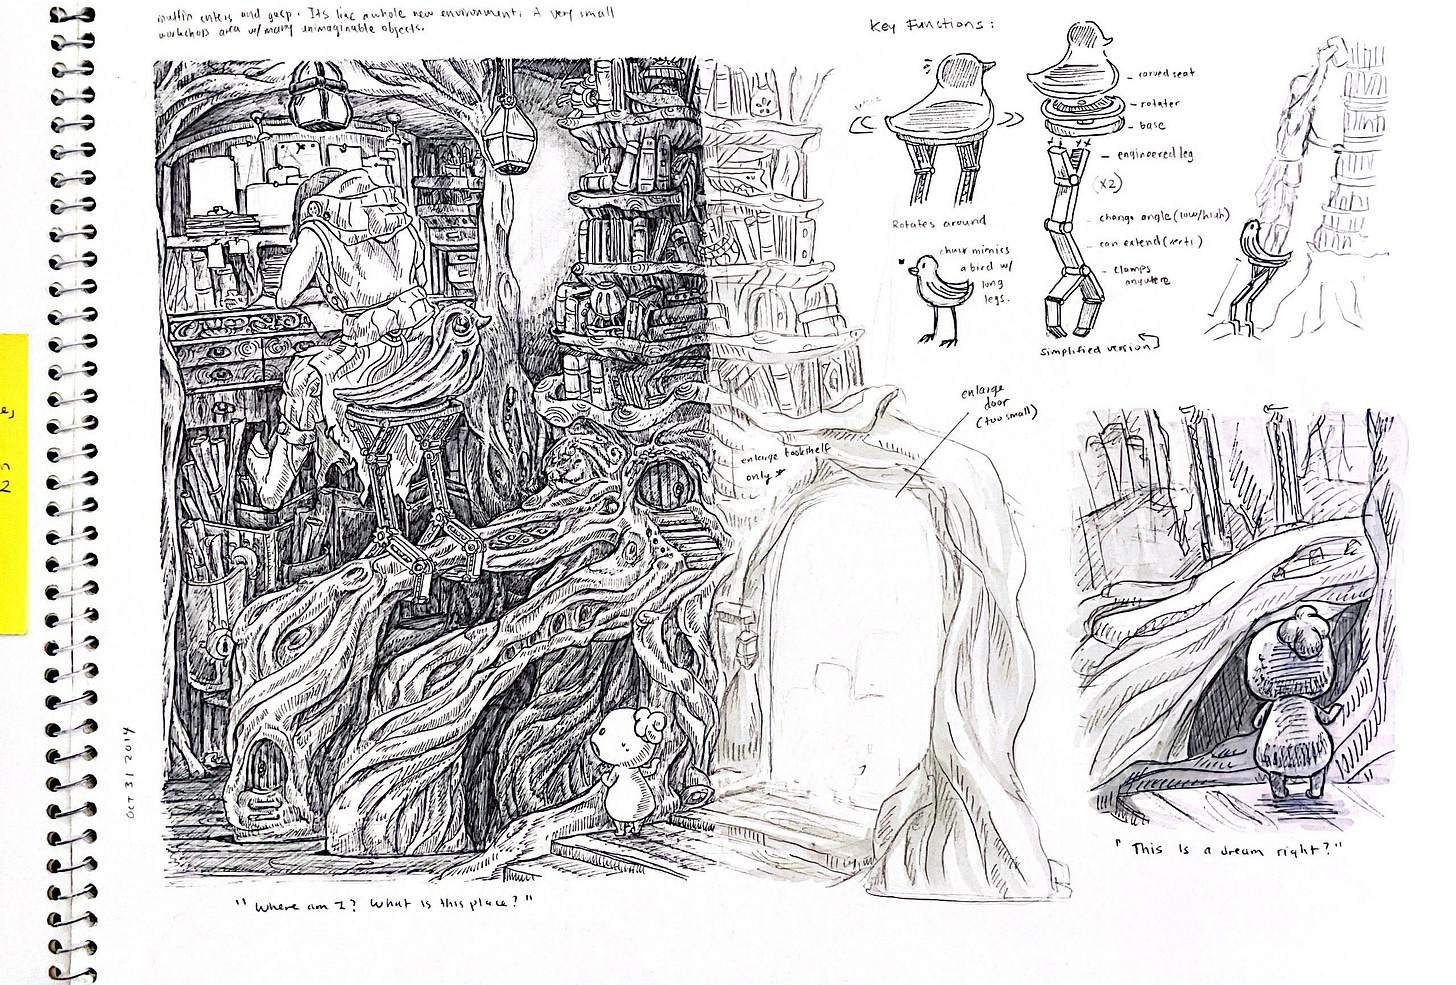 muffin enters and gasp. Its like a whole new environment. A very small
workshop area w/ many unimaginable objects.
Key Functions:
carved seat
rotater
base
engineered leg
(x2)
change angle (low/high)
can extend (verti)
clamps
anywhere
simplified version
Rotates around
chair mimics
a bird w/
long
legs.
enlarge
door
(too small)
enlarge bookshelf
only
Oct 31 2014
"Where am I? What is this place?"
"This is a dream right?"
e,
2